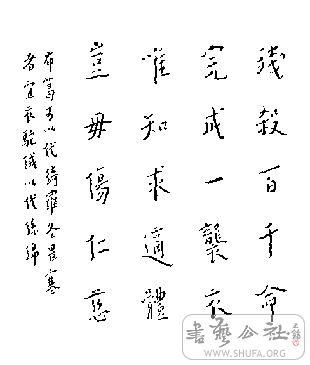 殘殺百千命
完成一襲衣
唯知求適體
豈毋傷仁慈
布葛可以代綺羅冬畏寒
者宜衣駝絨以代絲綿
書藝公社
WWW.SHUFA.ORG